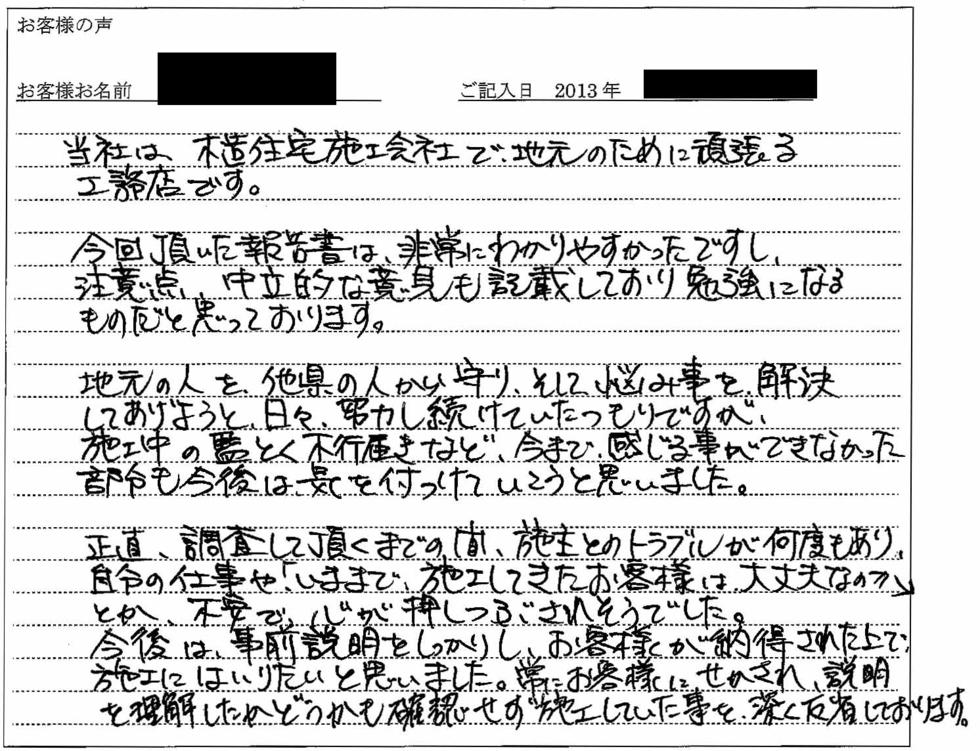 お客様の声
お客様お名前 ご記入日 2013年
当社は、木造住宅施工会社で、地元のために頑張る
工務店です。
今回頂いた報告書は、非常にわかりやすかったですし、
注意点、中立的な意見も記載しており勉強になる
ものだと思っております。
地元の人を、他県の人から守り、そして悩み事を、解決
してあげようと、日々、努力し続けていたつもりですが、
施工中の監とく不行届きなど、今まで、感じる事ができなかった
部分も今後は、気を付つけていこうと思いました。
正直、調査して頂くまでの間、施主とのトラブルが何度もあり、
自分の仕事や、いままで、施工してきたお客様は、大丈夫なのか、
とか、不安で、心が押しつぶされそうでした。
今後は、事前説明をしっかりし、お客様が納得された上で、
施工にはいりたいと思いました。常にお客様にせかされ、説明
を理解したかどうかも確認せず施工していた事を、深く反省しております。